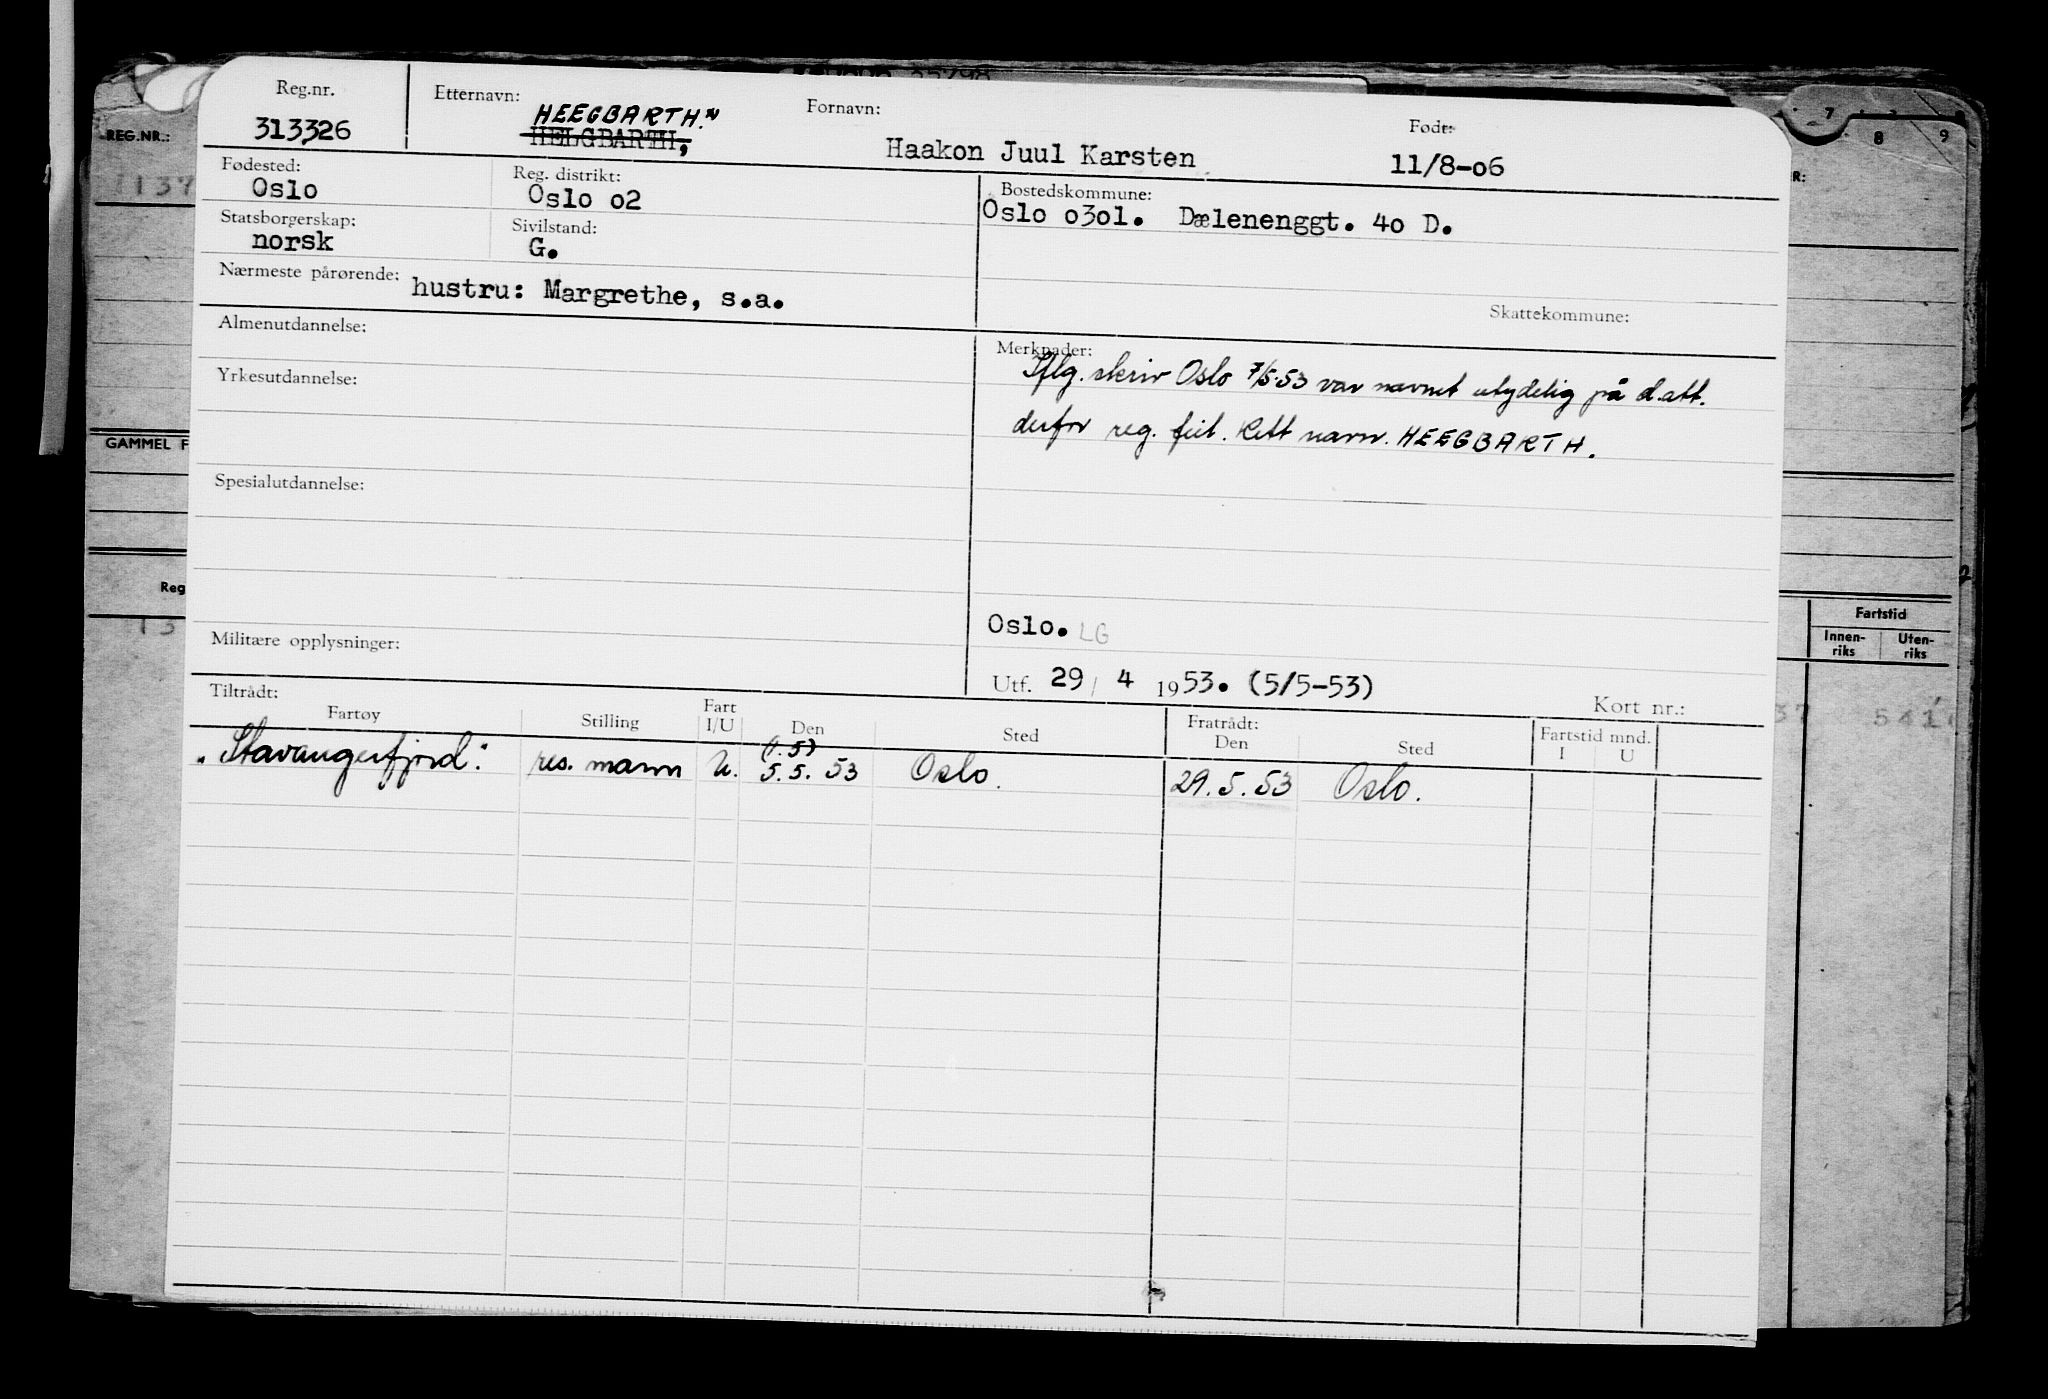 REG.NR.:
GAMMEL F
Reg
7 8 9
Fartstid
Innen-riks Uten-riks
Reg.nr. Etternavn: Fornavn: Født:
HEEGBARTH.
313326 HELGBARTH, Haakon Juul Karsten 11/8-o6
Fødested: Reg. distrikt: Bostedskommune:
Oslo Oslo o2 Oslo o3ol. Dælenenggt. 4o D.
Statsborgerskap: Sivilstand:
norsk G.
Nærmeste pårørende: hustru: Margrethe, s.a.
Skattekommune:
Almenutdannelse:
Merknader:
Iflg. skriv Oslo 7/5.53 var navnet utydelig på d.att.
Yrkesutdannelse:
derfor reg. feil. Rett navn. HEEGBARTH.
Spesialutdannelse:
Oslo. LG
Militære opplysninger:
Utf. 29/ 4 1953. (5/5-53)
Kort nr.:
Tiltrådt: Fratrådt:
Fartøy Stilling Fart I/U Den Sted Den Sted Fartstid mnd. I U
(1.5)
"Stavangerfjord". res. mann U. 5.5. 53 Oslo. 29.5.53 Oslo.